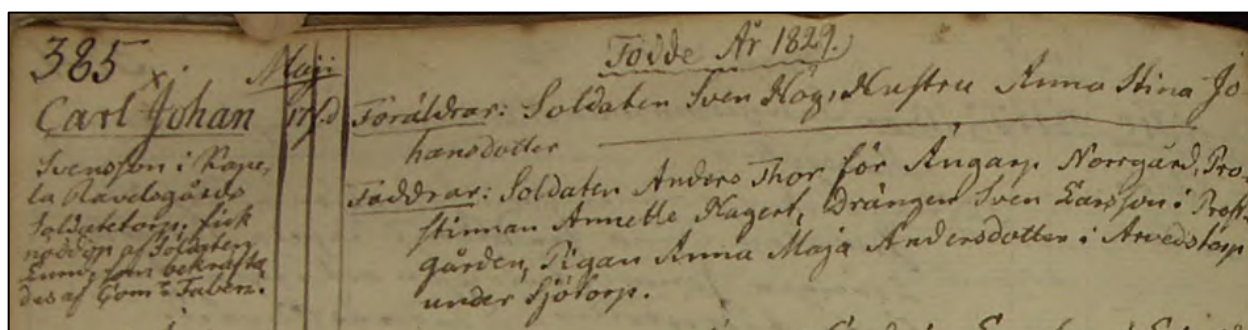 Födde År 1829.
385
Maji
Carl Johan
17
Svensson i
la Ravelsgårds
Soldatetorp, fick
nöddop af Soldaten
Lund, som bekräfta
des af Com: Faben.
Föräldrar: Soldaten Sven Hög, Hustru Anna Stina Jo
hansdotter
Faddrar: Soldaten Anders Thor för Ängarp Norrgård, Pro-
stinnan Annette Hagert, Drängen Sven Larsson i Prost
gården, Pigan Anna Maja Andersdotter i Arvedstorp
under Sjötorp.